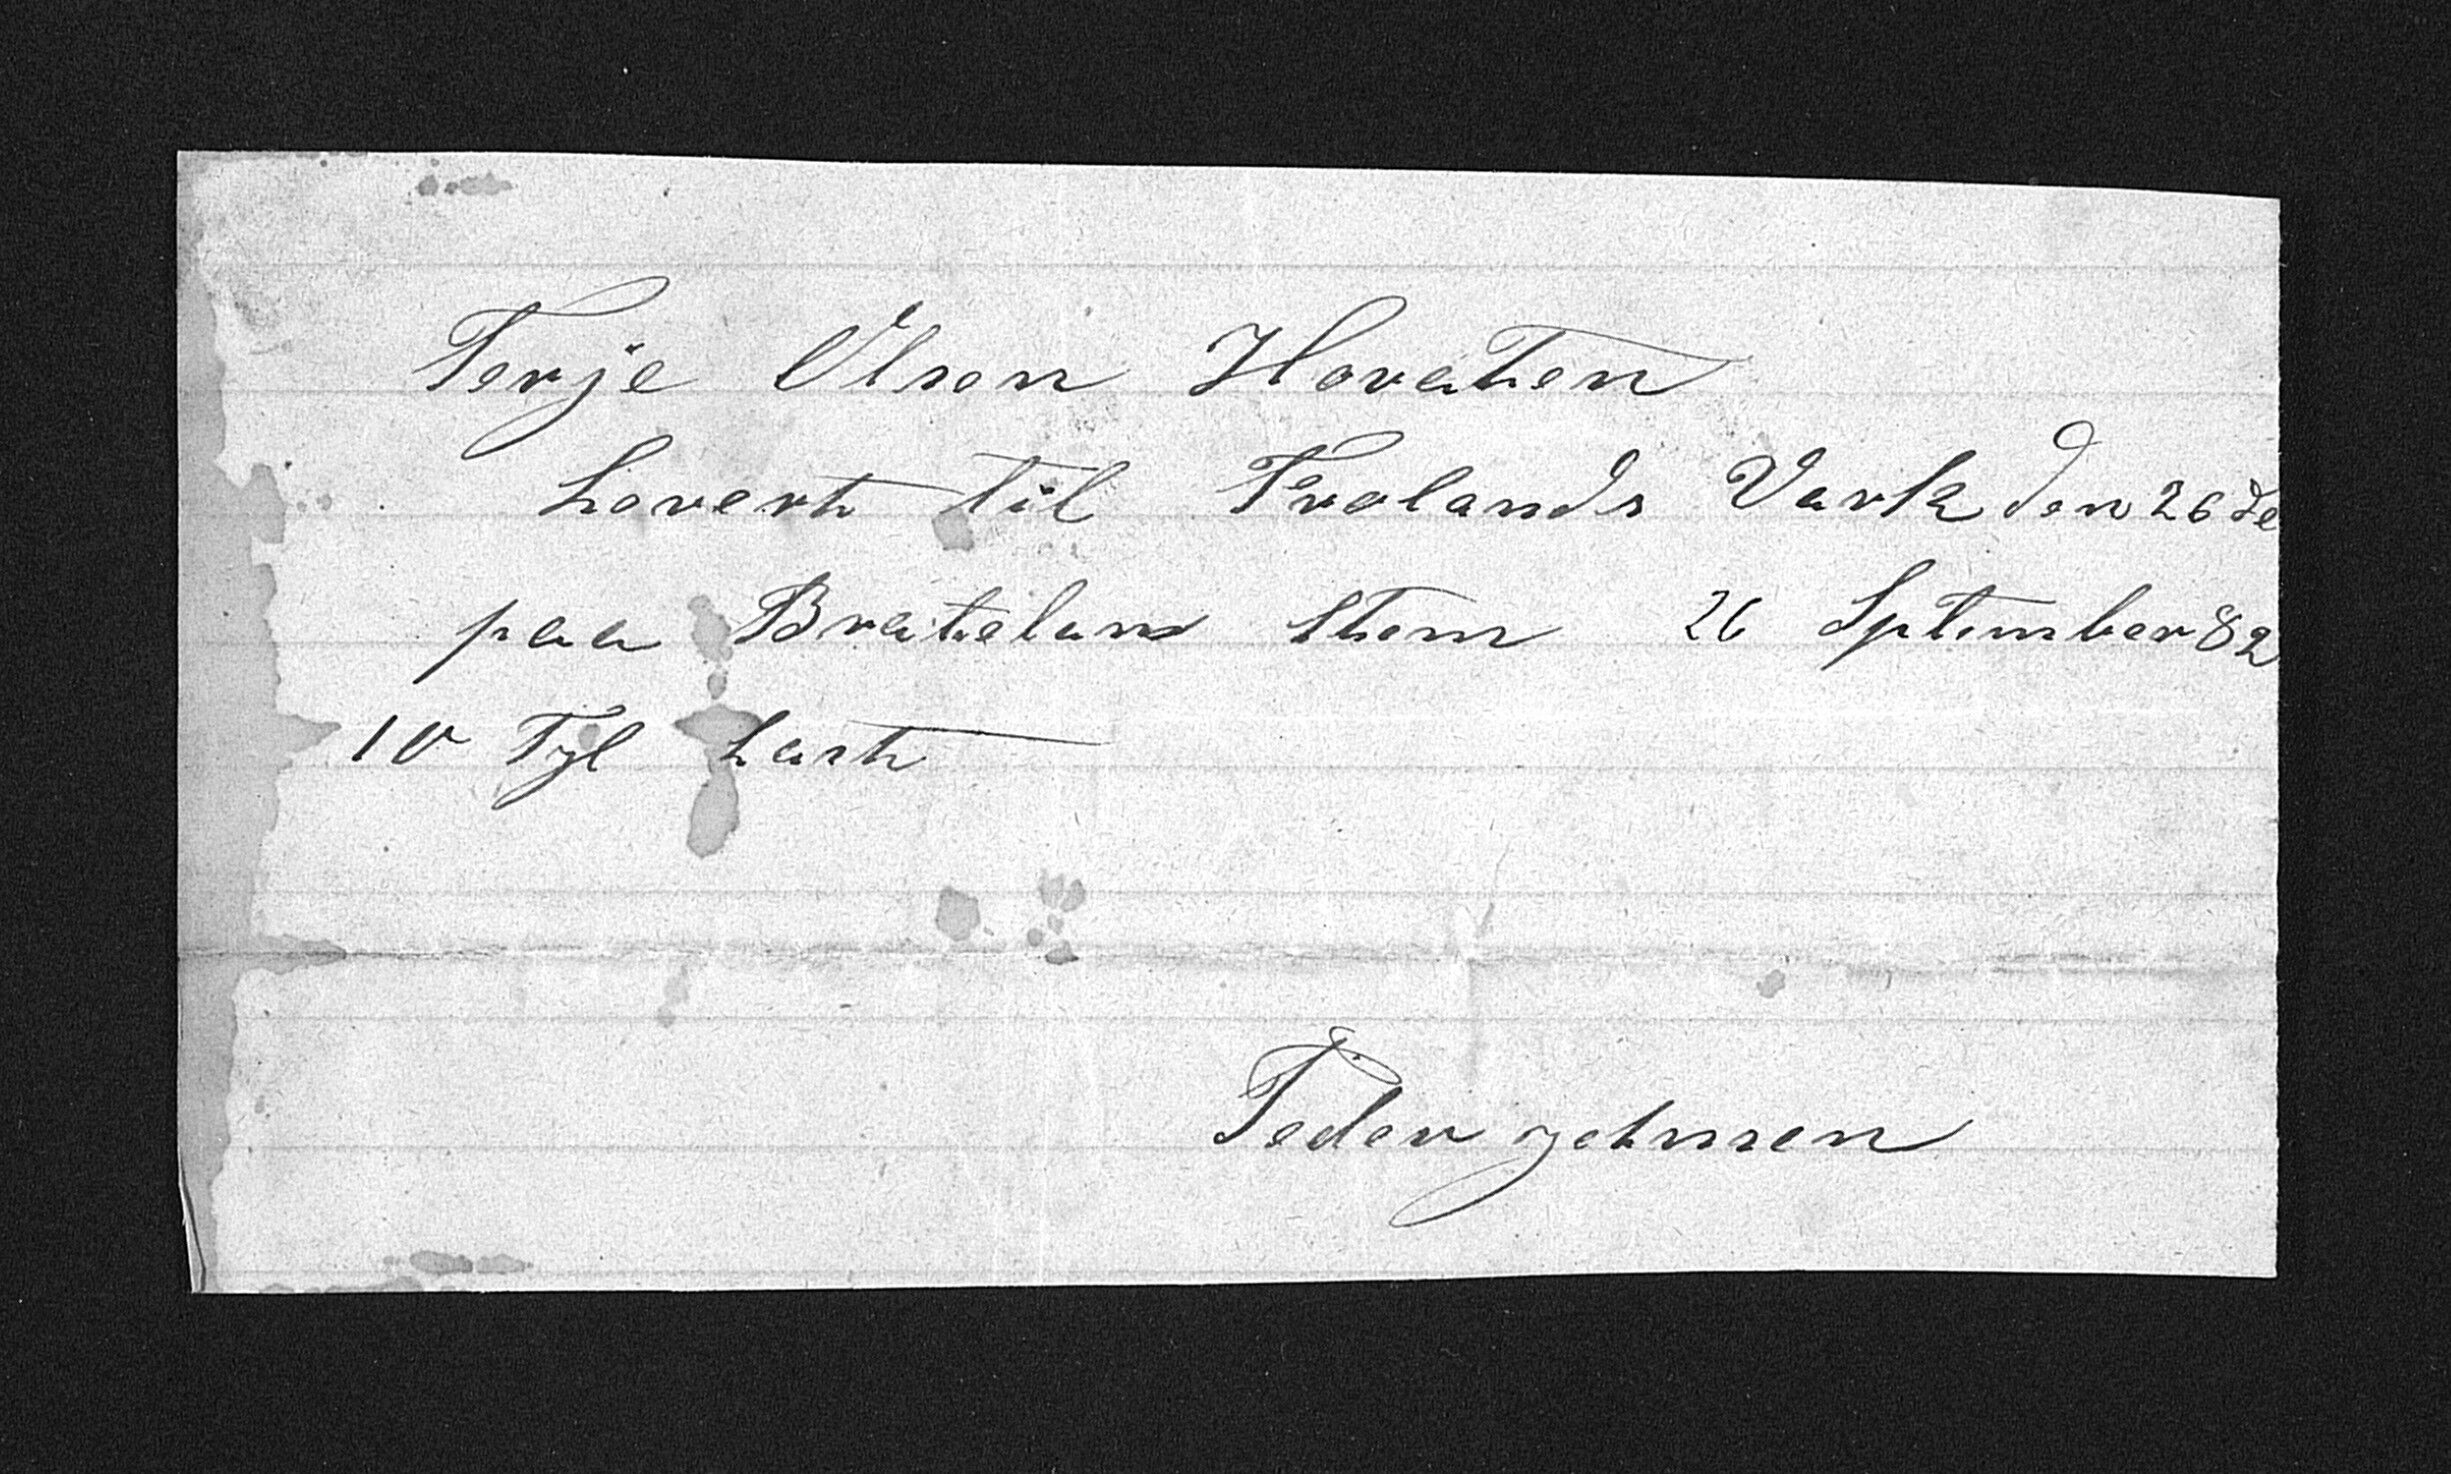 Terje Olsen Hovaten
Lovert til Frolands Vark den 26 de
paa Brateland Stem 26 Sptember 82
10 Tyl Last
Peder Johnsen